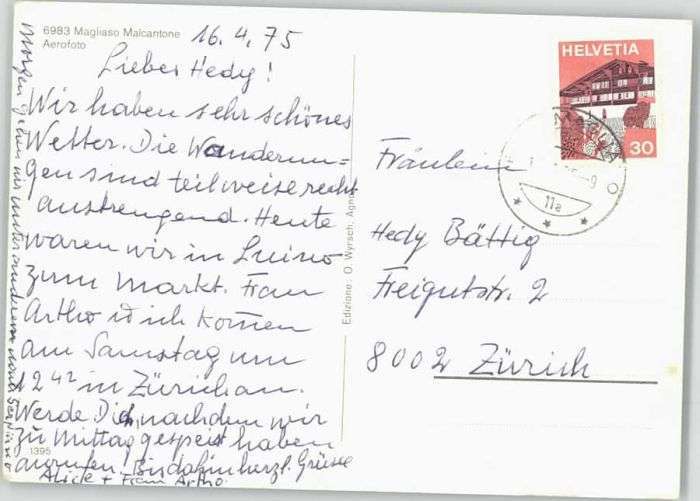 6983 Magliaso Malcantone
Aerofoto
16.4.75
Lieber Hedy!
Wir haben sehr schönes
Wetter. Die Wanderun=
gen sind teilweise recht
anstrengend. Heute
waren wir in Luino
zum Markt. Frau
Artho u ich kom̄en
am Samstag um
12 42 in Zürich an.
Werde Dich, nachdem wir
zu Mittag gespeist haben
anrufen. Bis dahin herzl. Grüsse
Alice + Frau Artho.
Morgen gehen wir unter anderem nach
1395
Edizione. O. Wyrsch, Agno
HELVETIA
30
MAGLIASO
11a
Fräulein
Hedy Bättig
Freigutstr. 2
8002 Zürich